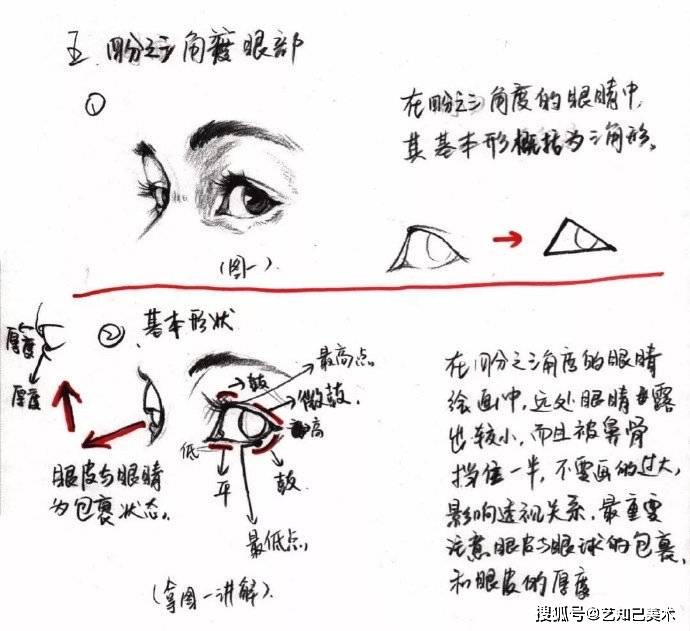 五、四分之三角度眼部
①
在四分之三角度的眼睛中,
其基本形概括为三角形。
(图一)
② 基本形状
厚度
厚度
眼皮与眼睛
为包裹状态。
最高点
鼓
微鼓
高
低
平
鼓
最低点
(拿图一讲解)
在四分之三角度的眼睛
绘画中,远处眼睛露
出较小,而且被鼻骨
挡住一半,不要画的过大,
影响透视关系,最重要
注意眼皮与眼球的包裹,
和眼皮的厚度
搜狐号@艺知己美术